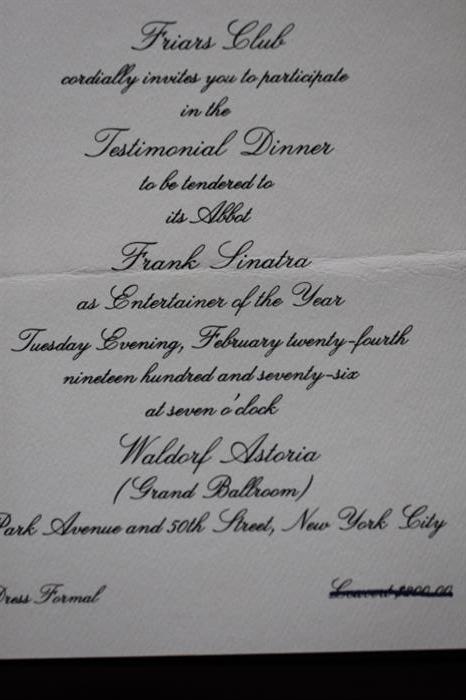 Friars Club
cordially invites you to participate
in the
Testimonial Dinner
to be tendered to
its Abbot
Frank Sinatra
as Entertainer of the Year
Tuesday Evening, February twenty-fourth
nineteen hundred and seventy-six
at seven o'clock
Waldorf Astoria
(Grand Ballroom)
Park Avenue and 50th Street, New York City
Dress Formal